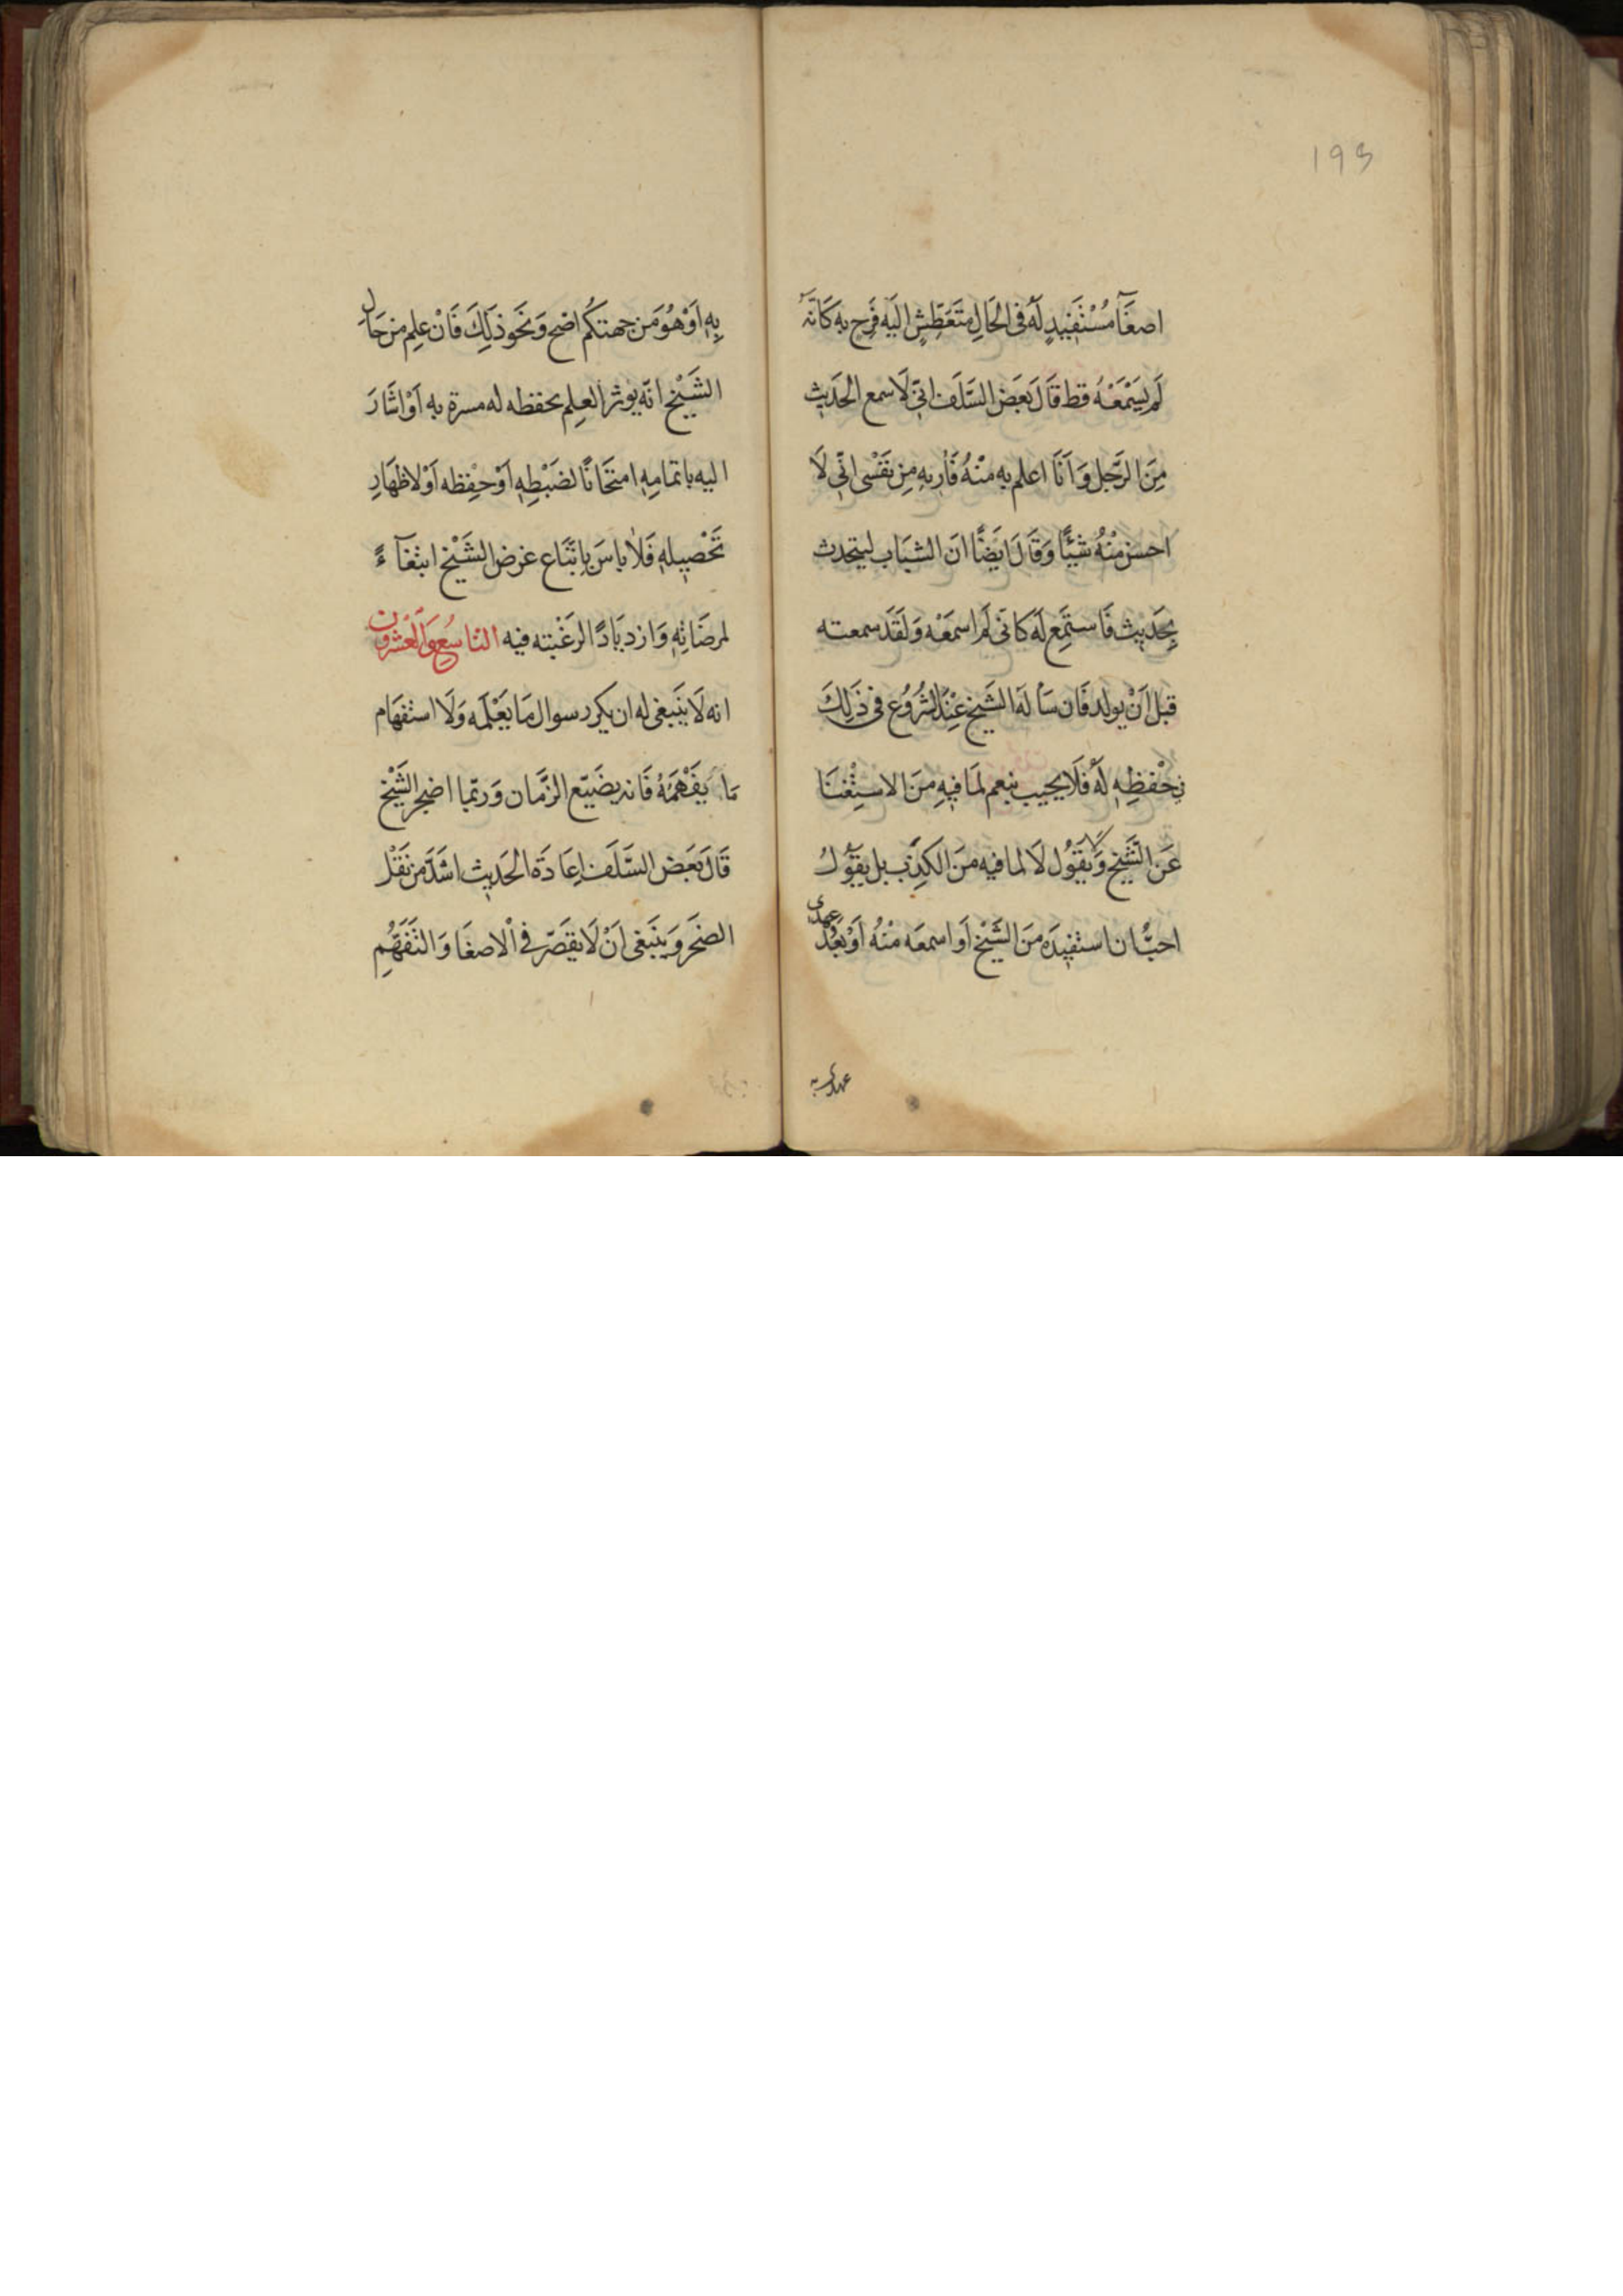 193
اصغَآ مُسْتَفِيدٍ لَهُ فى الحَالِ مُتَعَطِّشٍ اليَه فَرِح بِهِ كَانَّهُ
لَم يَسْمَعْهُ قط قَالَ بَعَض السَّلَف انّى لَاسمع الحَدِيث
مِنَ الرَّجل وَ اَنَا اعلم بِهِ مِنْهُ فَاُرِيهِ مِن نَفْسى انّى لَا
احسن مِنْهُ شَيْئًا وَقَالَ ايَضًا انَ الشبَاب ليتحدث
بِحَدِيث فَاستَمِع لَهُ كَانّى لَم اسمَعْه وَلَقَد سمعته
قبل اَنْ يولد فَان سَألَه الشَيخ عِنْدَ الشُرُوُع فى ذَلِكَ
بحْفظِهِ لَهُ فَلَا يجيب بنعم لمَا فِيهِ مِنَ الاستِغْنَا
عَن الشَّيخ وَلَا يقَوُل لَا لما فيه مِنَ الكَذِب بل يقَوُلُ
احبُّ ان استفِيدَه مِنَ الشَيْخ اَو اسمعَه مِنْهُ اَوْ بَعُدَ عهدى
عهدى به
بِهِ اَوْ هُوَ مَن جهتكُم اصَح وَ نَحَو ذَلِكَ فَانْ علِم من حَالِ
الشَيْخ انّه يوثر العِلم بحفظه له مسرة بِهِ اَوْ اشَارَ
اليه باتمامِهِ امتحَانًا لضَبْطِهِ اَوْ حِفْظه اَوْ لاظهَارِ
تَحْصِيلِهِ فَلَا باسَ بِاتّبَاع غرض الشَيْخ ابتغآءً
لمرضَاتِهِ وَازديَادًا لرَغْبته فيه التاسُع وَالعُشرون
انه لَا يَنَبغى له ان يكرر سوال مَا يَعْلَمه وَلَا استفهَام
مَا يَفْهَمَهُ فَانه يضَيّع الزَّمان وَ ربّما اضجر الشَيْخ
قَالَ بَعَض السَّلَف اِعَادَة الحَديث اشَدّ من نَقْل
الصَخَر وَ يَنَبغى اَنْ لَا يقصّر فى الاصغَا وَ التَفَهُّمِ